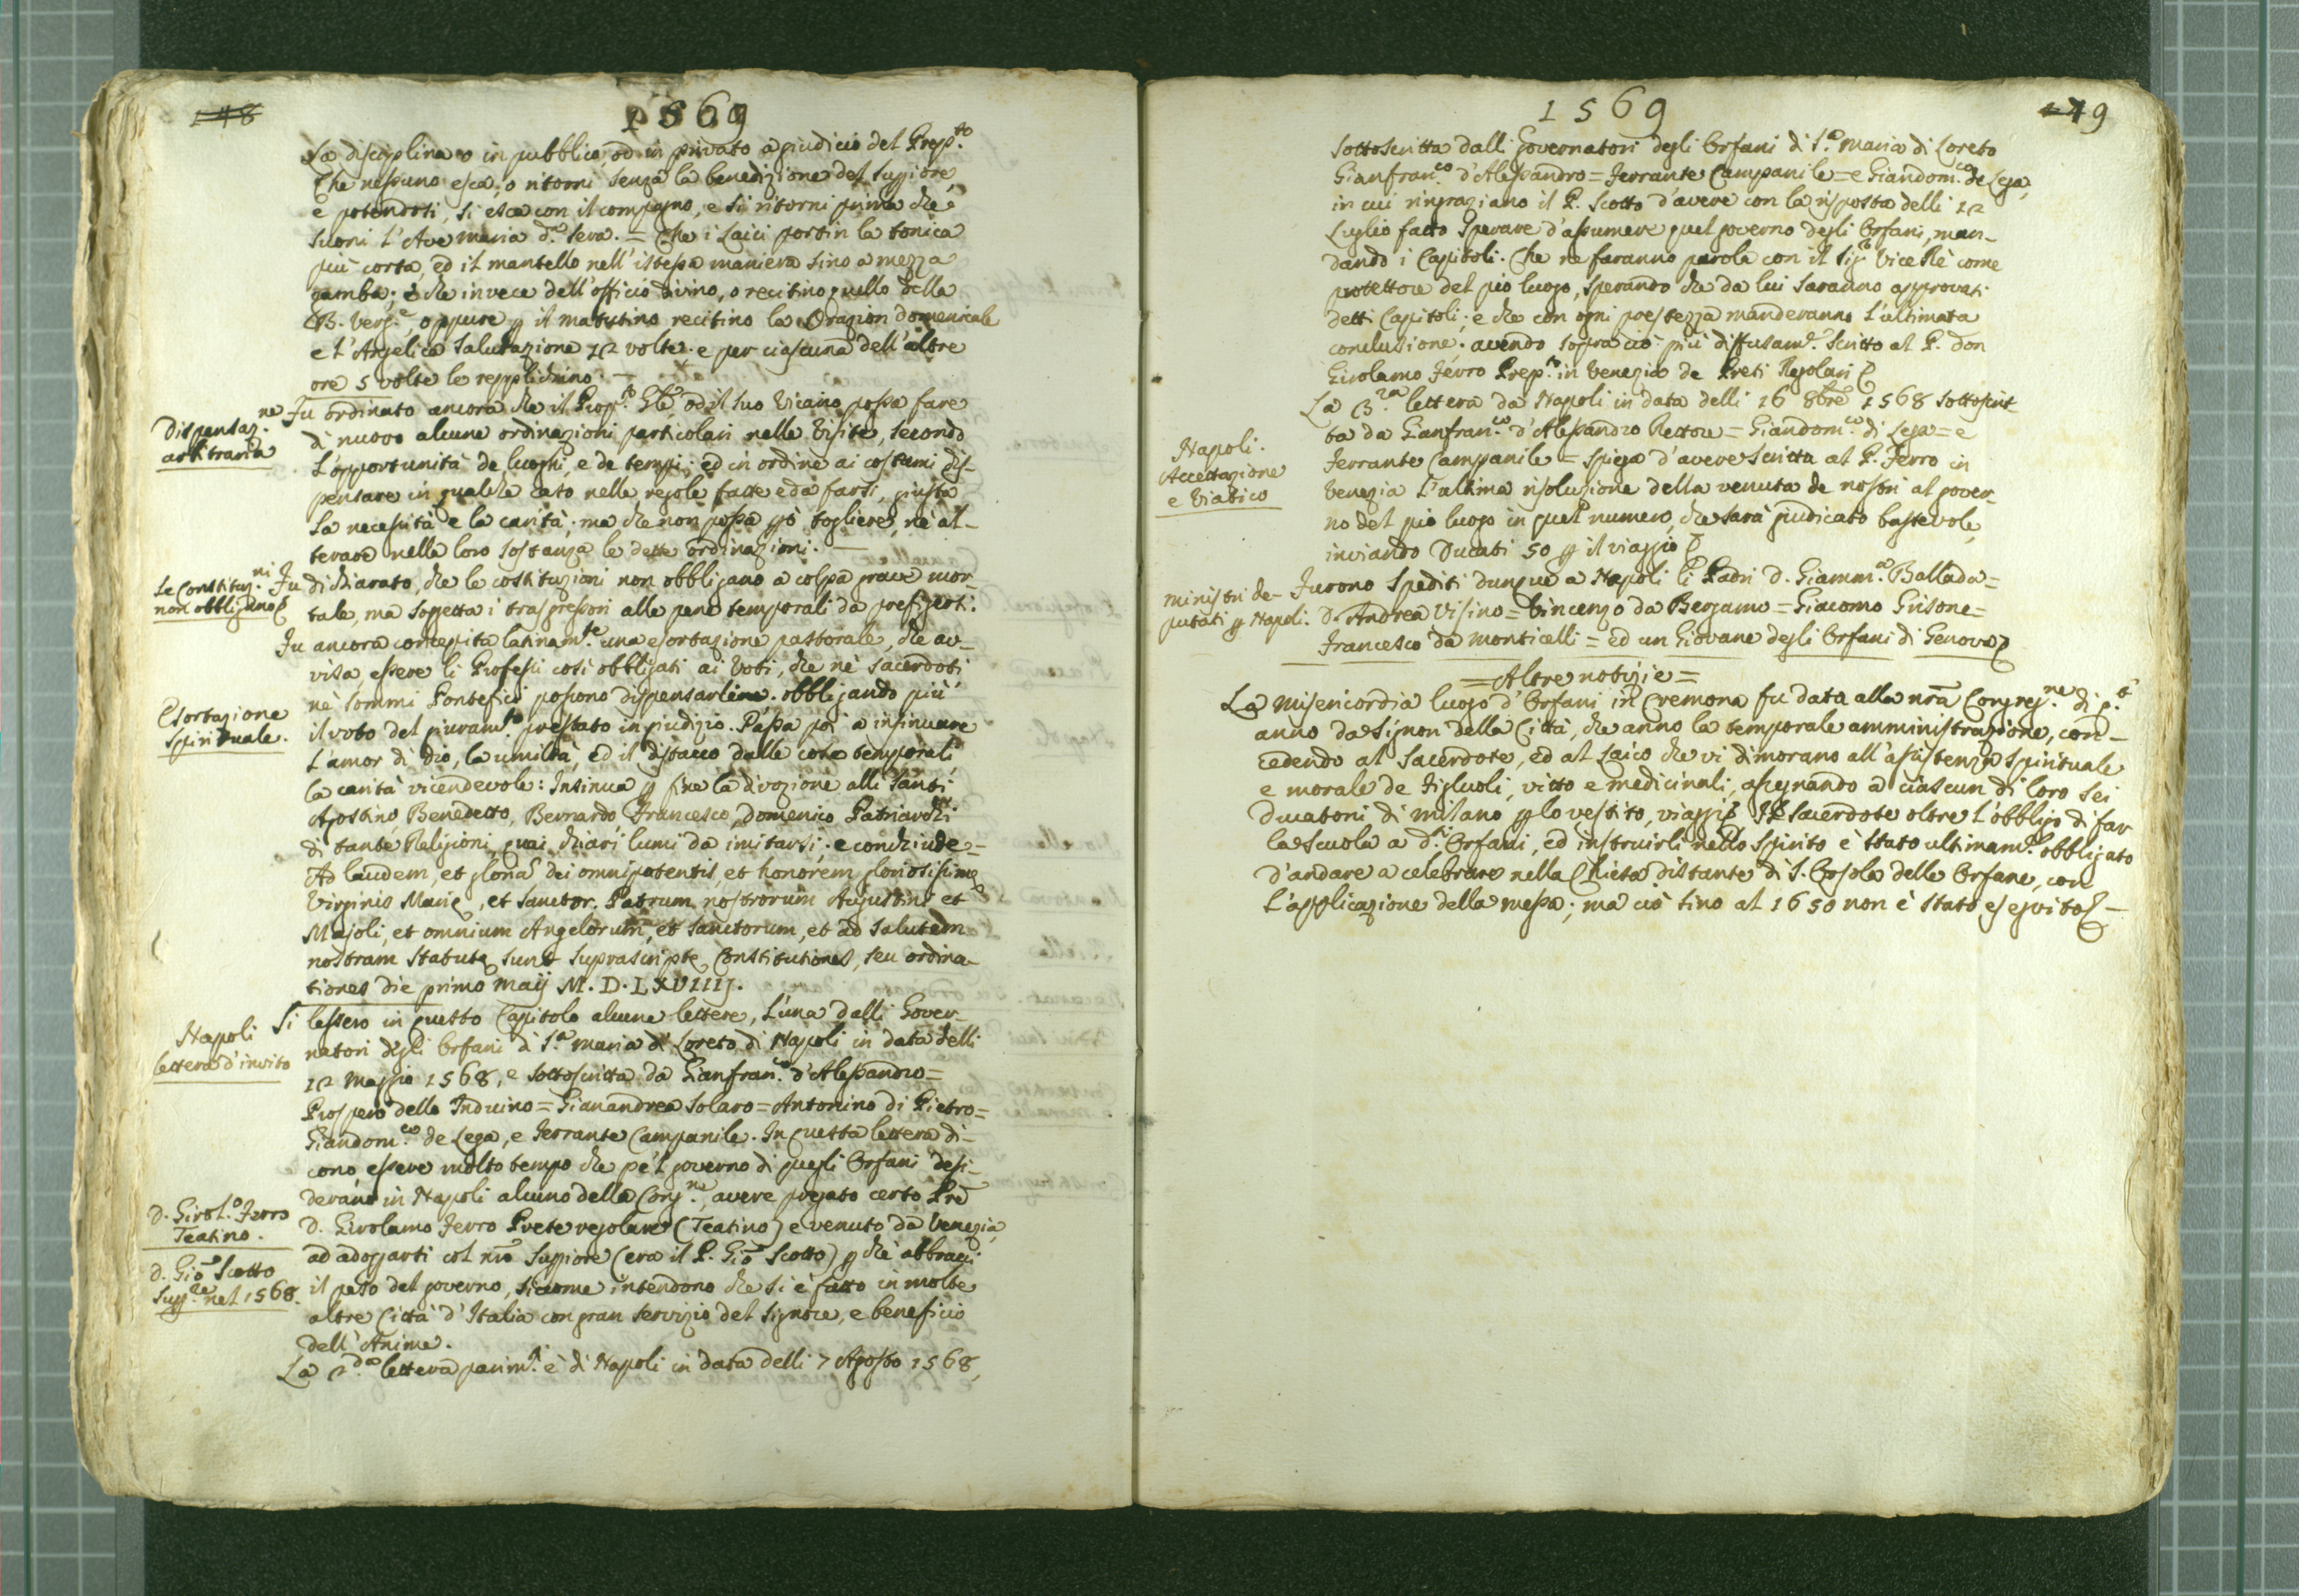 148
1569
La disciplina o in pubblico, od in privato a giudicio del Prep.to
Che nessuno esca, o ritorni senza la benedizione del Suppiore,
e potendosi, si esca con il compagno, e si ritorni prima che
suoni l'Ave maria d.a sera. = Che i Laici portin la tonica
più corta, ed il mantello nell'istessa maniera sino a mezza
gamba; e che invece dell'officio divino, o recitino quello della
B. Verg.e, oppure p il matutino recitino la Orazion domenicale
e l'Angelica Salutazione 12 volte. e per ciascuna dell'altre
ore 5 volte le repplichino. —
Dispensaz.ne
arbitraria
Fu ordinato ancora che il Prop.to Gle od il suo Vicario possa fare
di nuovo alcune ordinazioni particolari nelle Visite, secondo
L'opportunità de luoghi, e de tempi; ed in ordine ai costumi dis-
pensare in qualche caso nelle regole fatte e da farsi, giusta
La necessità e la carità; ma che non possa pò togliere, nè al-
terare nella loro sostanza le dette ordinazioni. —
Le Constituz.ni
non obbligano
Fu dichiarato, che le costituzioni non obbligano a colpa grave mor-
tale, ma soggetta i trasgressori alle pene temporali da prefiggersi.
Fu ancora concepita latinam.te una esortazione pastorale, che av-
visa essere li Professi così obbligati ai Voti, che nè Sacerdoti
nè Sommi Pontefici possono dispensarline. obbligando più
Esortazione
Spirituale.
il voto del giuram.to prestato in giudizio. Passa poi a insinuare
L'amor di Dio, la umiltà, ed il distacco dalle cose temporali,
la carità vicendevole: Insinua p fine la divozione alli Santi
Agostino, Benedetto, Bernardo Francesco, Domenico Patriarchi
di tante Religioni, quai chiari lumi da imitarsi; e conchiude =
Ad laudem, et gloria Dei omnipotentis, et honorem gloriosissime
Virginis Marie, et Sanctor. Patrum nostrorum Augustini et
Majoli, et omnium Angelorum, et Sanctorum, et ad Salutem
nostram Statute sunt Suprascripte Constitutiones, seu ordina-
tiones die primo Maij M. D. LXVIIIJ.
Napoli
lettera d'invito
Si lessero in questo Capitolo alcune lettere, L'una dalli Gover-
natori degli Orfani di S.a Maria di Loreto di Napoli in data delli
12 Maggio 1568, e sottoscritta da Gianfran.co d'Alessandro =
Prospero dello Induino = Gianandrea Solaro = Antonino di Pietro =
Giandom.co de Lega, e Ferrante Campanile. In questa lettera di-
cono essere molto tempo che pe'l governo di quegli Orfani desi-
derano in Napoli alcuno della Cong.ne, avere pregato certo Pre
D. Girol.o Ferro
Teatino.
D. Girolamo Ferro Prete regolare (Teatino) e venuto da Venezia,
ad adoprarsi col nro Suppiore (era il P. Gio Scotto) p che abbracci
D. Gio Scotto
Supp.re nel 1568.
il peso del governo, siccome intendono che si è fatto in molte
altre Città d'Italia con gran servizio del Signore, e beneficio
dell'Anime.
La 2.da lettera parim.ti è di Napoli in data delli 7 Agosto 1568,
1569
149
sottoscritta dalli Governatori degli Orfani di S.a Maria di Loreto
Gianfran.co d'Alessandro = Ferrante Campanile = e Giandom.co de Lega,
in cui ringraziano il P. Scotto d'avere con la risposta delli 12
Luglio fatto sperare d'assumere quel governo degli Orfani, man-
dando i Capitoli. Che ne faranno parola con il Sig.r Vice Rè come
protettore del pio luogo, sperando che da lui saranno approvati
detti Capitoli; e che con ogni prestezza manderanno L'ultimata
conclusione; avendo sopra ciò più diffusam.te scritto al P. Don
Girolamo Ferro Prep.to in Venezia de Preti Regolari
Napoli.
Accettazione
e Viatico
La 3.za lettera da Napoli in data delli 16 8bre 1568 sottoscrit-
ta da Gianfran.co d'Alessandro Rettore = Giandom.co di Lega = e
Ferrante Campanile = spiega d'avere scritta al P. Ferro in
Venezia L'ultima risoluzione della venuta de nostri al gover-
no del pio luogo in quel numero, che sarà giudicato bastevole,
inviando Ducati 50 p il viaggio
Ministri de-
putati p Napoli.
Furono spediti dunque a Napoli li Padri D. Giamm.a Ballada =
D. Andrea Visino = Vincenzo da Bergamo = Giacomo Grisone =
Francesco da Monticelli = ed un Giovane degli Orfani di Genova
= Altre notizie =
La Misericordia luogo d'Orfani in Cremona fu data alla nra Congreg.ne di q.to
anno da Signori della Città, che anno la temporale amministrazione, con-
cedendo al Sacerdote, ed al Laico che vi dimorano all'assistenza spirituale
e morale de Figliuoli, vitto e medicinali, assegnando a ciascun di loro sei
Ducatoni di Milano p lo vestito, viaggi. Il Sacerdote oltre l'obbligo di far
la Scuola a d.ti Orfani, ed instruirli nello Spirito è stato ultimam.te obbligato
d'andare a celebrare nella Chiesa distante di S. Orsola delle Orfane, con
L'applicazione della messa; ma ciò sino al 1650 non è stato eseguito —